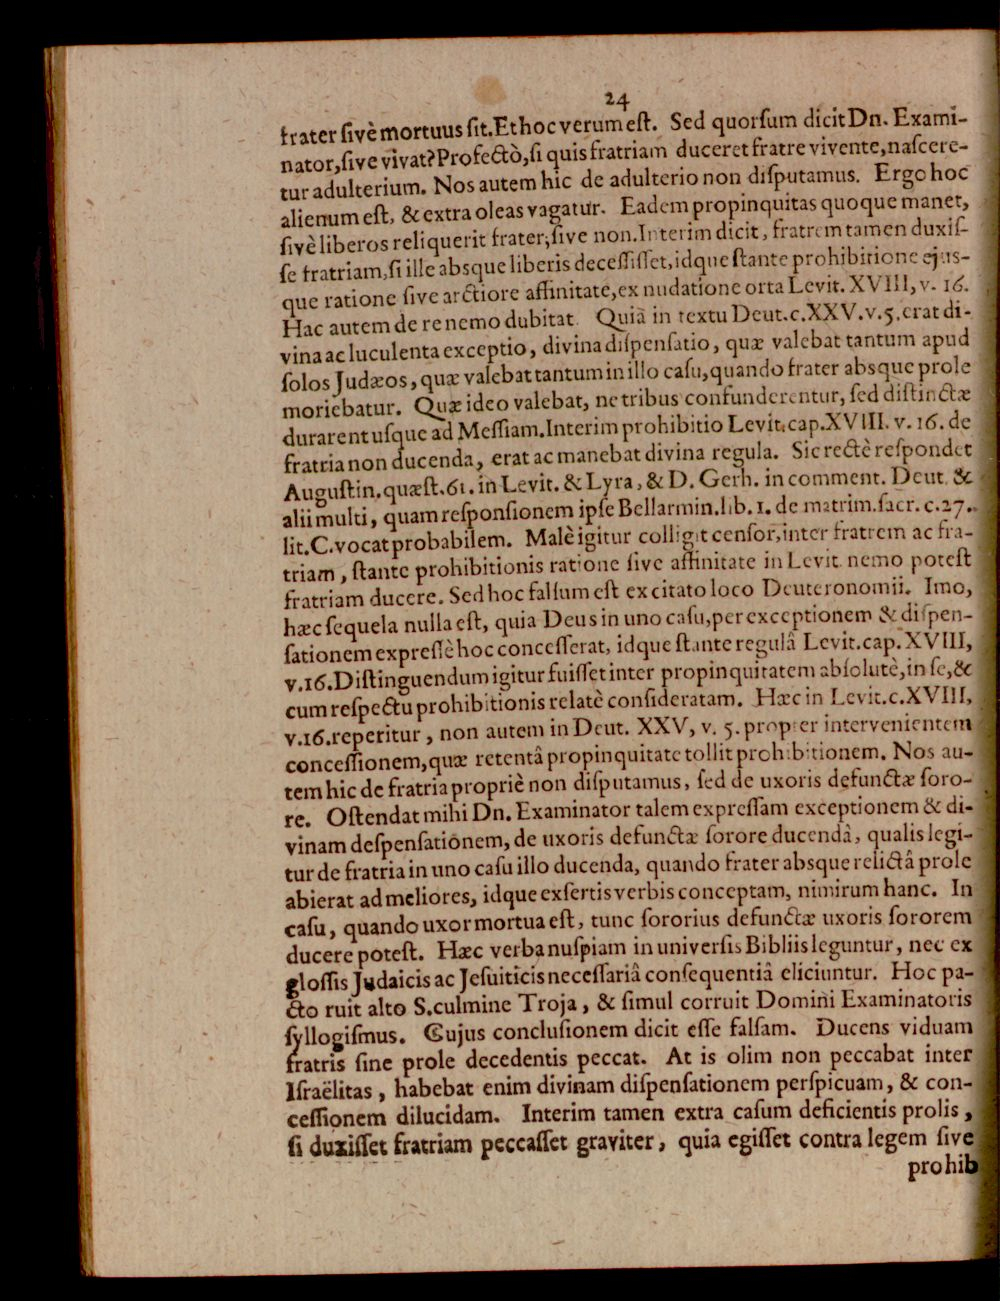 24
frater sivè mortuus sit. Et hoc verum est. Sed quorsum dicit Dn. Exami-
nator, sive vivat? Profectò, si quis fratriam duceret fratre vivente, nascere-
tur adulterium. Nos autem hic de adulterio non disputamus. Ergo hoc
alienum est, & extra oleas vagatur. Eadem propinquitas quoque manet,
sivè liberos reliquerit frater, sive non. Interim dicit, fratrem tamen duxis-
se fratriam, si ille absque liberis decessisset, idque stante prohibitione ejus-
que ratione sive arctiore affinitate, ex nudatione orta Levit. XVIII, v. 16.
Hac autem de re nemo dubitat. Quia in textu Deut. c. XXV. v. 5. erat di-
vina ac luculenta exceptio, divina dispensatio, quæ valebat tantum apud
solos Judæos, quæ valebat tantum in illo casu, quando frater absque prole
moriebatur. Quæ ideo valebat, ne tribus confunderentur, sed distinctæ
durarent usque ad Messiam. Interim prohibitio Levit. cap. XVIII. v. 16. de
fratria non ducenda, erat ac manebat divina regula. Sic rectè respondet
Augustin. quæst. 61. in Levit. & Lyra, & D. Gerh. in comment. Deut. &
alii multi, quam responsionem ipse Bellarmin. lib. 1. de matrim. sacr. c. 27.
lit. C. vocat probabilem. Malè igitur colligit censor, inter fratrem ac fra-
triam, stante prohibitionis ratione sive affinitate in Levit. nemo potest
fratriam ducere. Sed hoc falsum est ex citato loco Deuteronomii. Imo,
hæc sequela nulla est, quia Deus in uno casu, per exceptionem & dispen-
sationem expressè hoc concesserat, idque stante regulâ Levit. cap. XVIII,
v. 16. Distinguendum igitur fuisset inter propinquitatem absolutè, in se, &
cum respectu prohibitionis relatè consideratam. Hæc in Levit. c. XVIII,
v. 16. reperitur, non autem in Deut. XXV, v. 5. propter intervenientem
concessionem, quæ retentâ propinquitate tollit prohibitionem. Nos au-
tem hic de fratria propriè non disputamus, sed de uxoris defunctæ soro-
re. Ostendat mihi Dn. Examinator talem expressam exceptionem & di-
vinam despensationem, de uxoris defunctæ sorore ducendâ, qualis legi-
tur de fratria in uno casu illo ducenda, quando frater absque relictâ prole
abierat ad meliores, idque exsertis verbis conceptam, nimirum hanc. In
casu, quando uxor mortua est, tunc sororius defunctæ uxoris sororem
ducere potest. Hæc verba nuspiam in universis Bibliis leguntur, nec ex
glossis Judaicis ac Jesuiticis necessariâ consequentiâ eliciuntur. Hoc pa-
cto ruit alto S. culmine Troja, & simul corruit Domini Examinatoris
syllogismus. Cujus conclusionem dicit esse falsam. Ducens viduam
fratris sine prole decedentis peccat. At is olim non peccabat inter
Israëlitas, habebat enim divinam dispensationem perspicuam, & con-
cessionem dilucidam. Interim tamen extra casum deficientis prolis,
si duxisset fratriam peccasset graviter, quia egisset contra legem sive
prohib